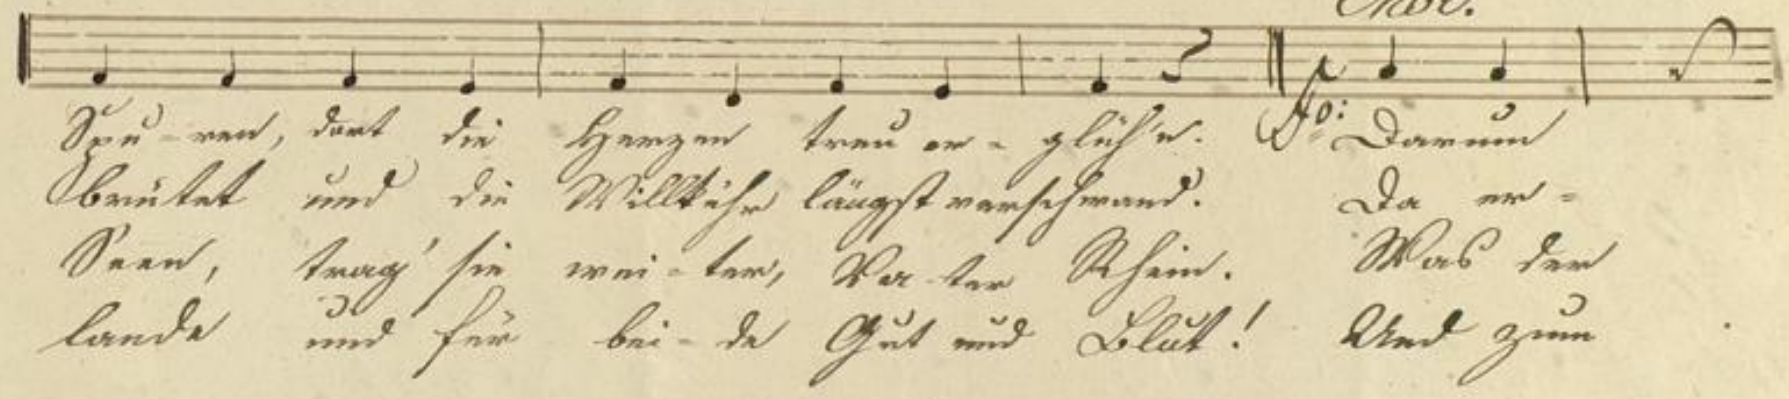 Chor.
Spu-ren, dort die Herzen treu er-glüh'n. fo: Darum
brütet und die Willkühr längst verschwand. Da er-
Seen, trag' sie wei-ter, Va-ter Rhein. Was der
lande und für bei-de Gut und Blut! Und zum